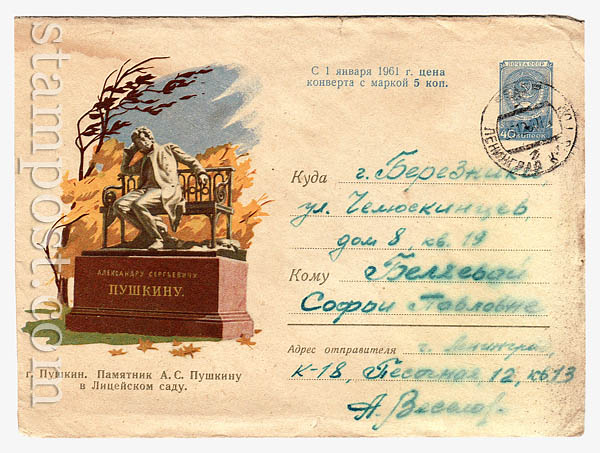 С 1 января 1961 г. цена
конверта с маркой 5 коп.
ПОЧТА СССР
40 КОПЕЕК
ЛЕНИНГРАД
Куда г. Березники
ул. Челюскинцев
дом 8, кв. 19
Кому Беляевой
Софьи Павловне
Адрес отправителя г. Ленинград,
К-18, Песочная 12, кв 13
А. Веселов
АЛЕКСАНДРУ СЕРГѢЕВИЧУ
ПУШКИНУ.
г. Пушкин. Памятник А. С. Пушкину
в Лицейском саду.
stampost.com